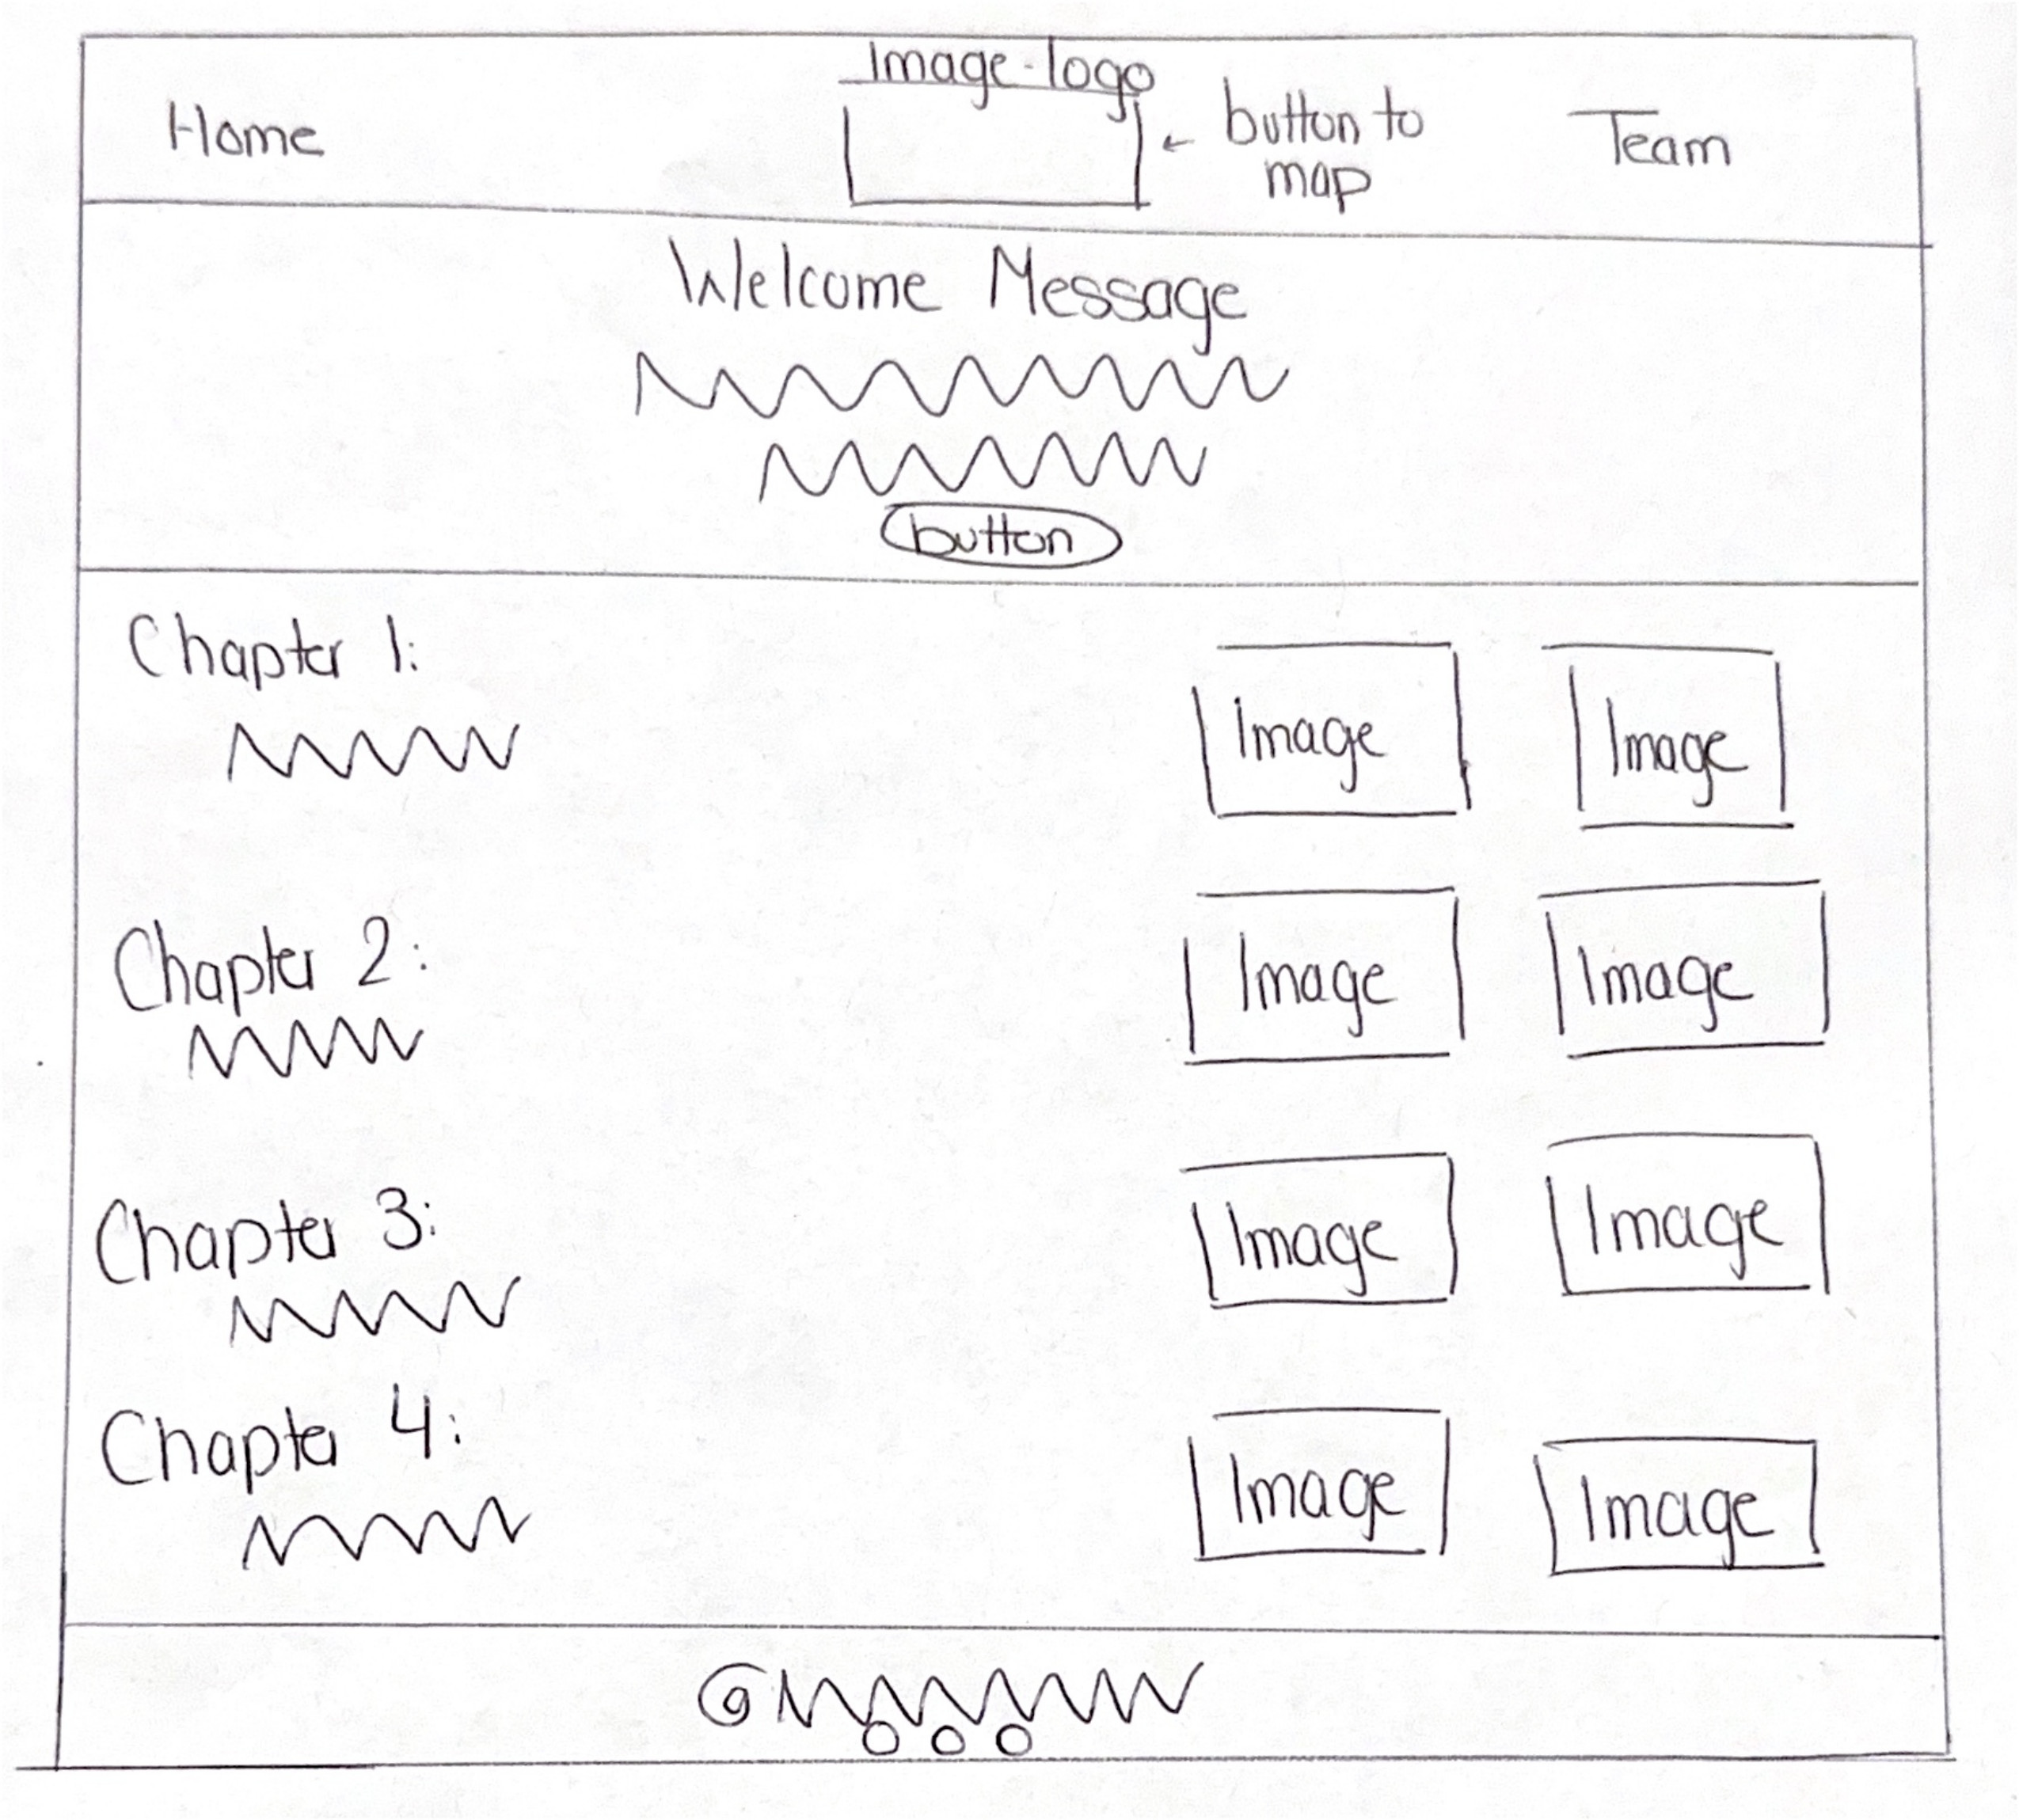 Image-logo
Home
button to
map
Team
Welcome Message
button
Chapter 1:
Image
Image
Chapter 2:
Image
Image
Chapter 3:
Image
Image
Chapter 4:
Image
Image